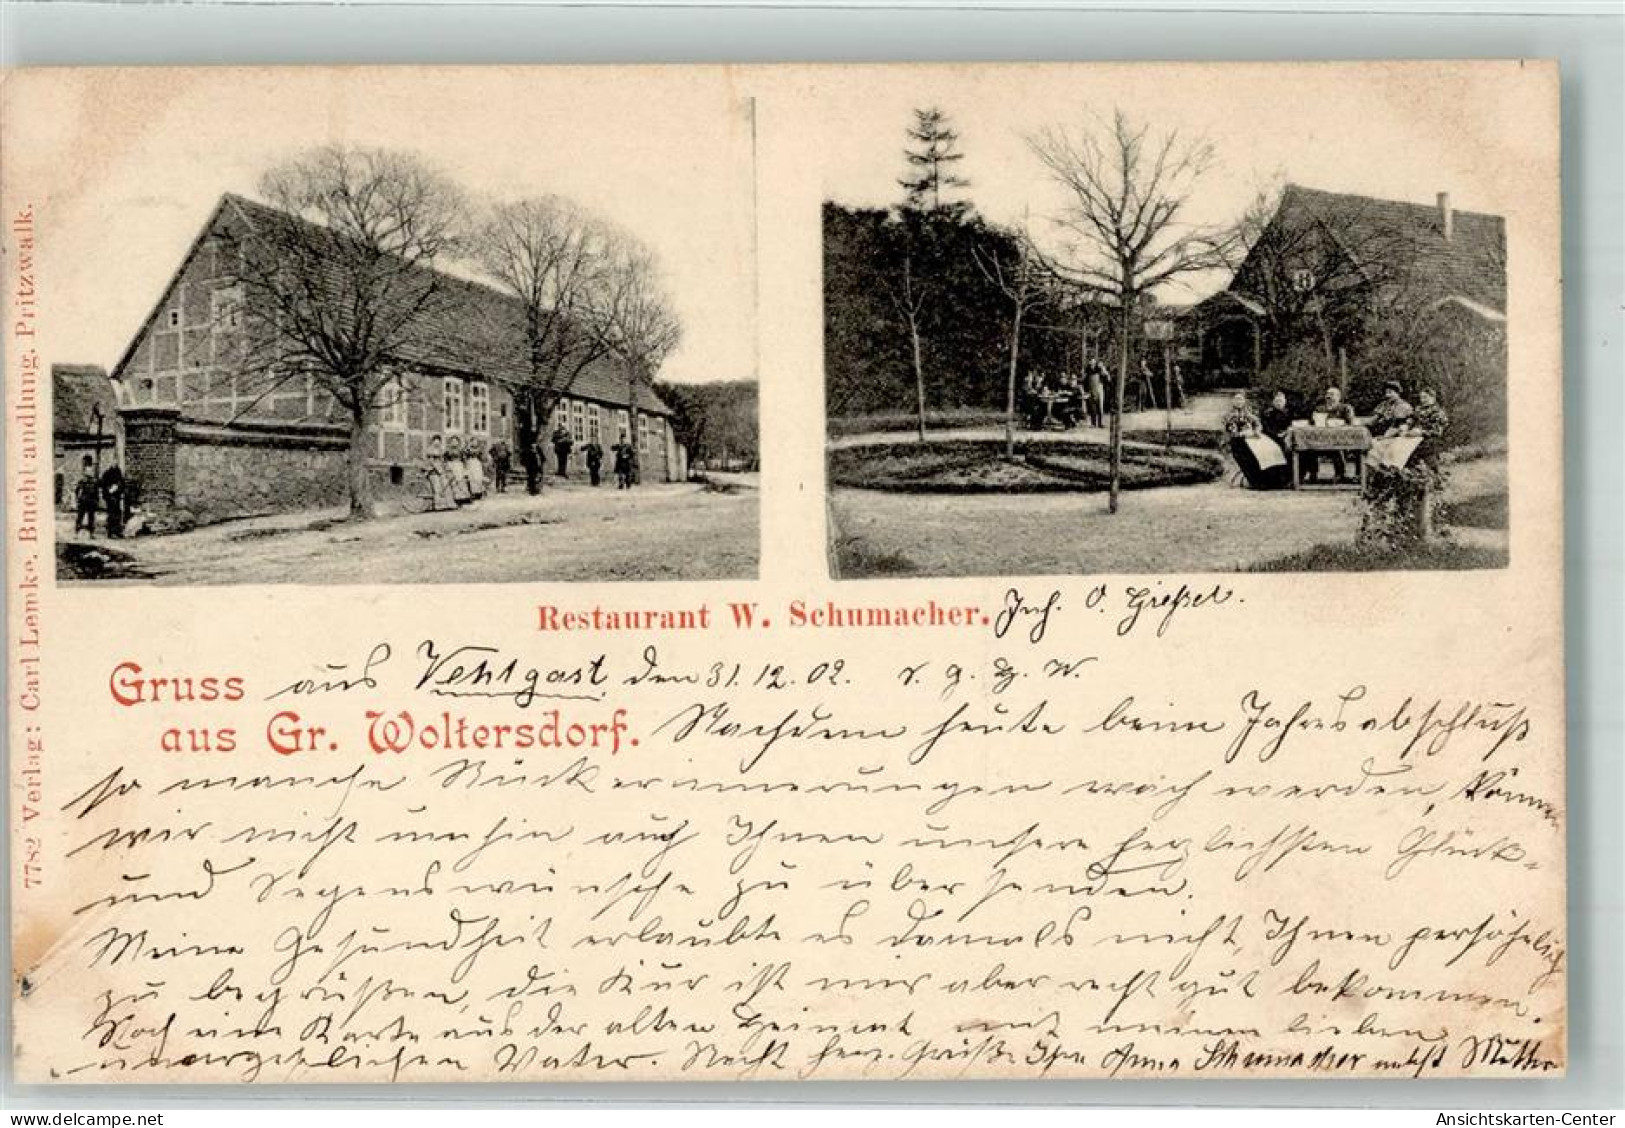 7782 Verlag: Carl Lemke, Buchhandlung, Pritzwalk.
Restaurant W. Schumacher. Inh. O. Grießel.
Gruss aus Vehlgast den 31.12.02.
aus Gr. Woltersdorf. Nachdem heute beim Jahresabschluß
so manche Rückerinnerungen wach werden, können
wir nicht umhin auch Ihnen unsere herzlichsten Glück-
und Segenswünsche zu übersenden.
Meine Gesundheit erlaubte es damals nicht, Ihnen persöhnlich
zu begrüßen, die Kur ist mir aber recht gut bekommen.
Noch eine Karte aus der alten Heimat mit meinem lieben
unvergeßlichen Vater. Recht herz. Grüße Ihre Anna Schumacher nebst Mutter
Ansichtskarten-Center